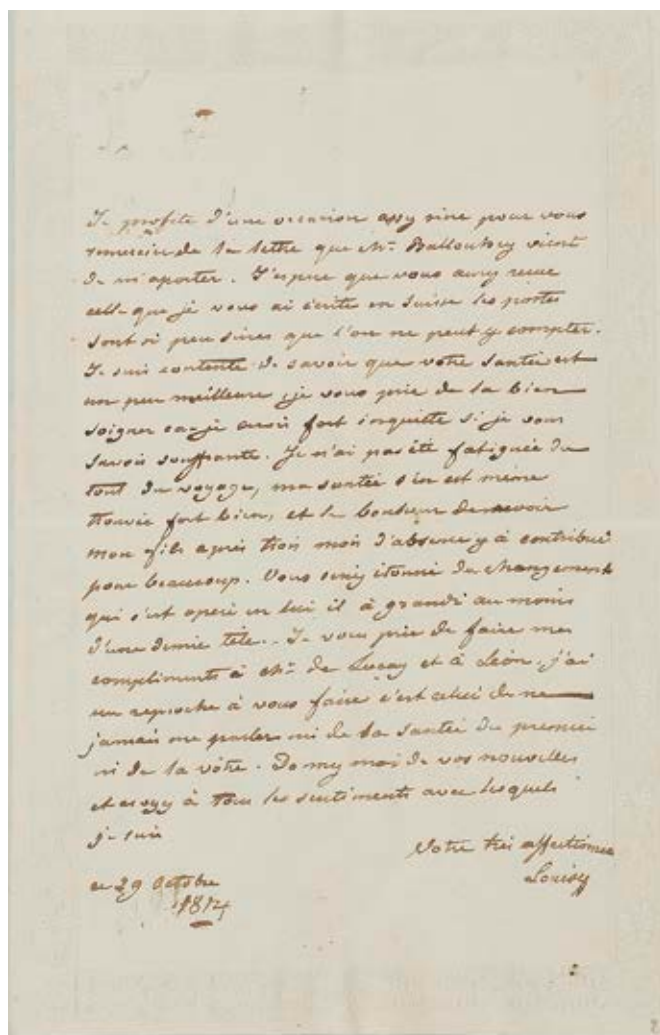 Je profite d'une occasion assy sure pour vous
remercier de la lettre que Mr. Ballouhey vient
de m'aporter. J'espere que vous avez reçue
celle que je vous ai écrite en Suisse les postes
sont si peu sures que l'on ne peut y compter.
Je suis contente de savoir que votre santée est
un peu meilleure, je vous prie de la bien
soigner car je serois fort inquiette si je vous
savois souffrante. Je n'ai pas été fatiguée du
tout du voyage, ma santée s'en est même
trouvée fort bien, et le bonheur de revoir
mon fils après trois mois d'absence y à contribué
pour beaucoup. Vous seriez étonné du changement
qui s'est operé en lui il à grandi au moins
d'une demie tête. Je vous prie de faire mes
compliments à Mr. de Luçay et à Léon, j'ai
un reproche à vous faire c'est celui de ne
jamais me parler ni de la santée du premier
ni de la vôtre. Donnez moi de vos nouvelles
et croyez à tous les sentiments avec lesquels
je suis
Votre très affectionnée
Louise
ce 29 Octobre
1814